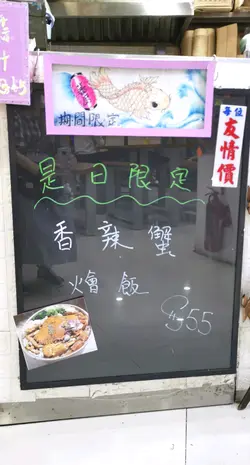 期間限定
每位
友情價
是日限定
香辣蟹
燴飯
$55